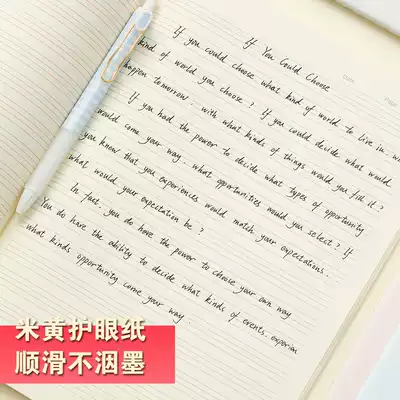 If You Could Choose
If you could choose what kind of world to live in, wh
kind of world you choose? If you could decide what would
happen tomorrow, with what kinds of things would you fill it?
If you had the power to decide what types of opportunity
would come your way, what opportunities would you select? If
you know that you experiences would match your expectations,
what would your expectation be?
In fact, you do have the power to choose your own way
You do have the ability to decide what kinds of events, experien
what kinds opportunity come your way.
Date.
米黄护眼纸
顺滑不洇墨